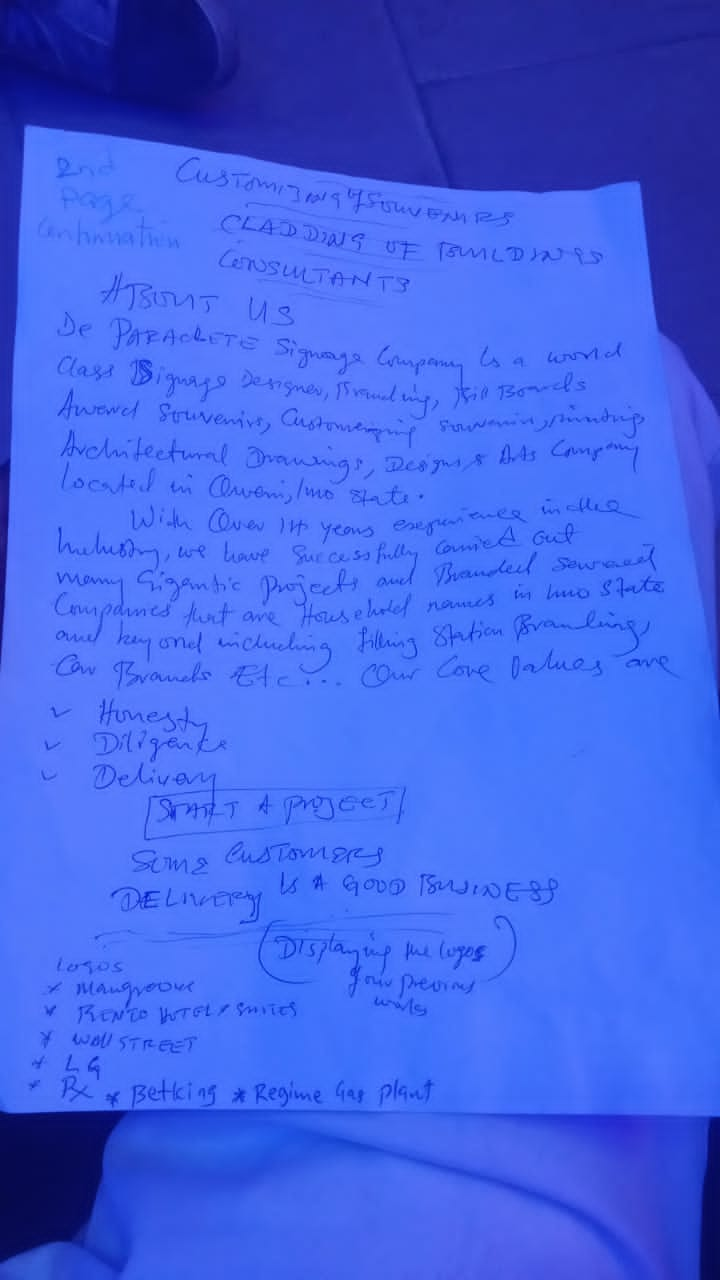 2nd
Page
Continuation
CUSTOMIZING of SOUVENIRS
CLADDING OF BUILDINGS
CONSULTANTS
ABOUT US
De PARACLETE Signage Company is a world
Class Signage Designer, Branding, Bill Boards
Award Souvenirs, Customizing Souvenir, printing
Architectural Drawings, Designs & Arts Company
located in Owerri, Imo State.
With Over 14 years experience in the
Industry, we have Successfully Carried Out
many Gigantic Projects and Branded Several
Companies that are Household names in Imo State
and beyond including filling Station Branding,
Car Brands Etc... Our Core Values are
✓ Honesty
✓ Diligence
✓ Delivery
START A PROJECT
SOME CUSTOMERS
DELIVERY IS A GOOD BUSINESS
(Displaying the logos
of our previous
works)
Logos
* Mangroove
* HOTEL & SUITES
* WALL STREET
* LG
* Rx * Betking * Regime Gas plant